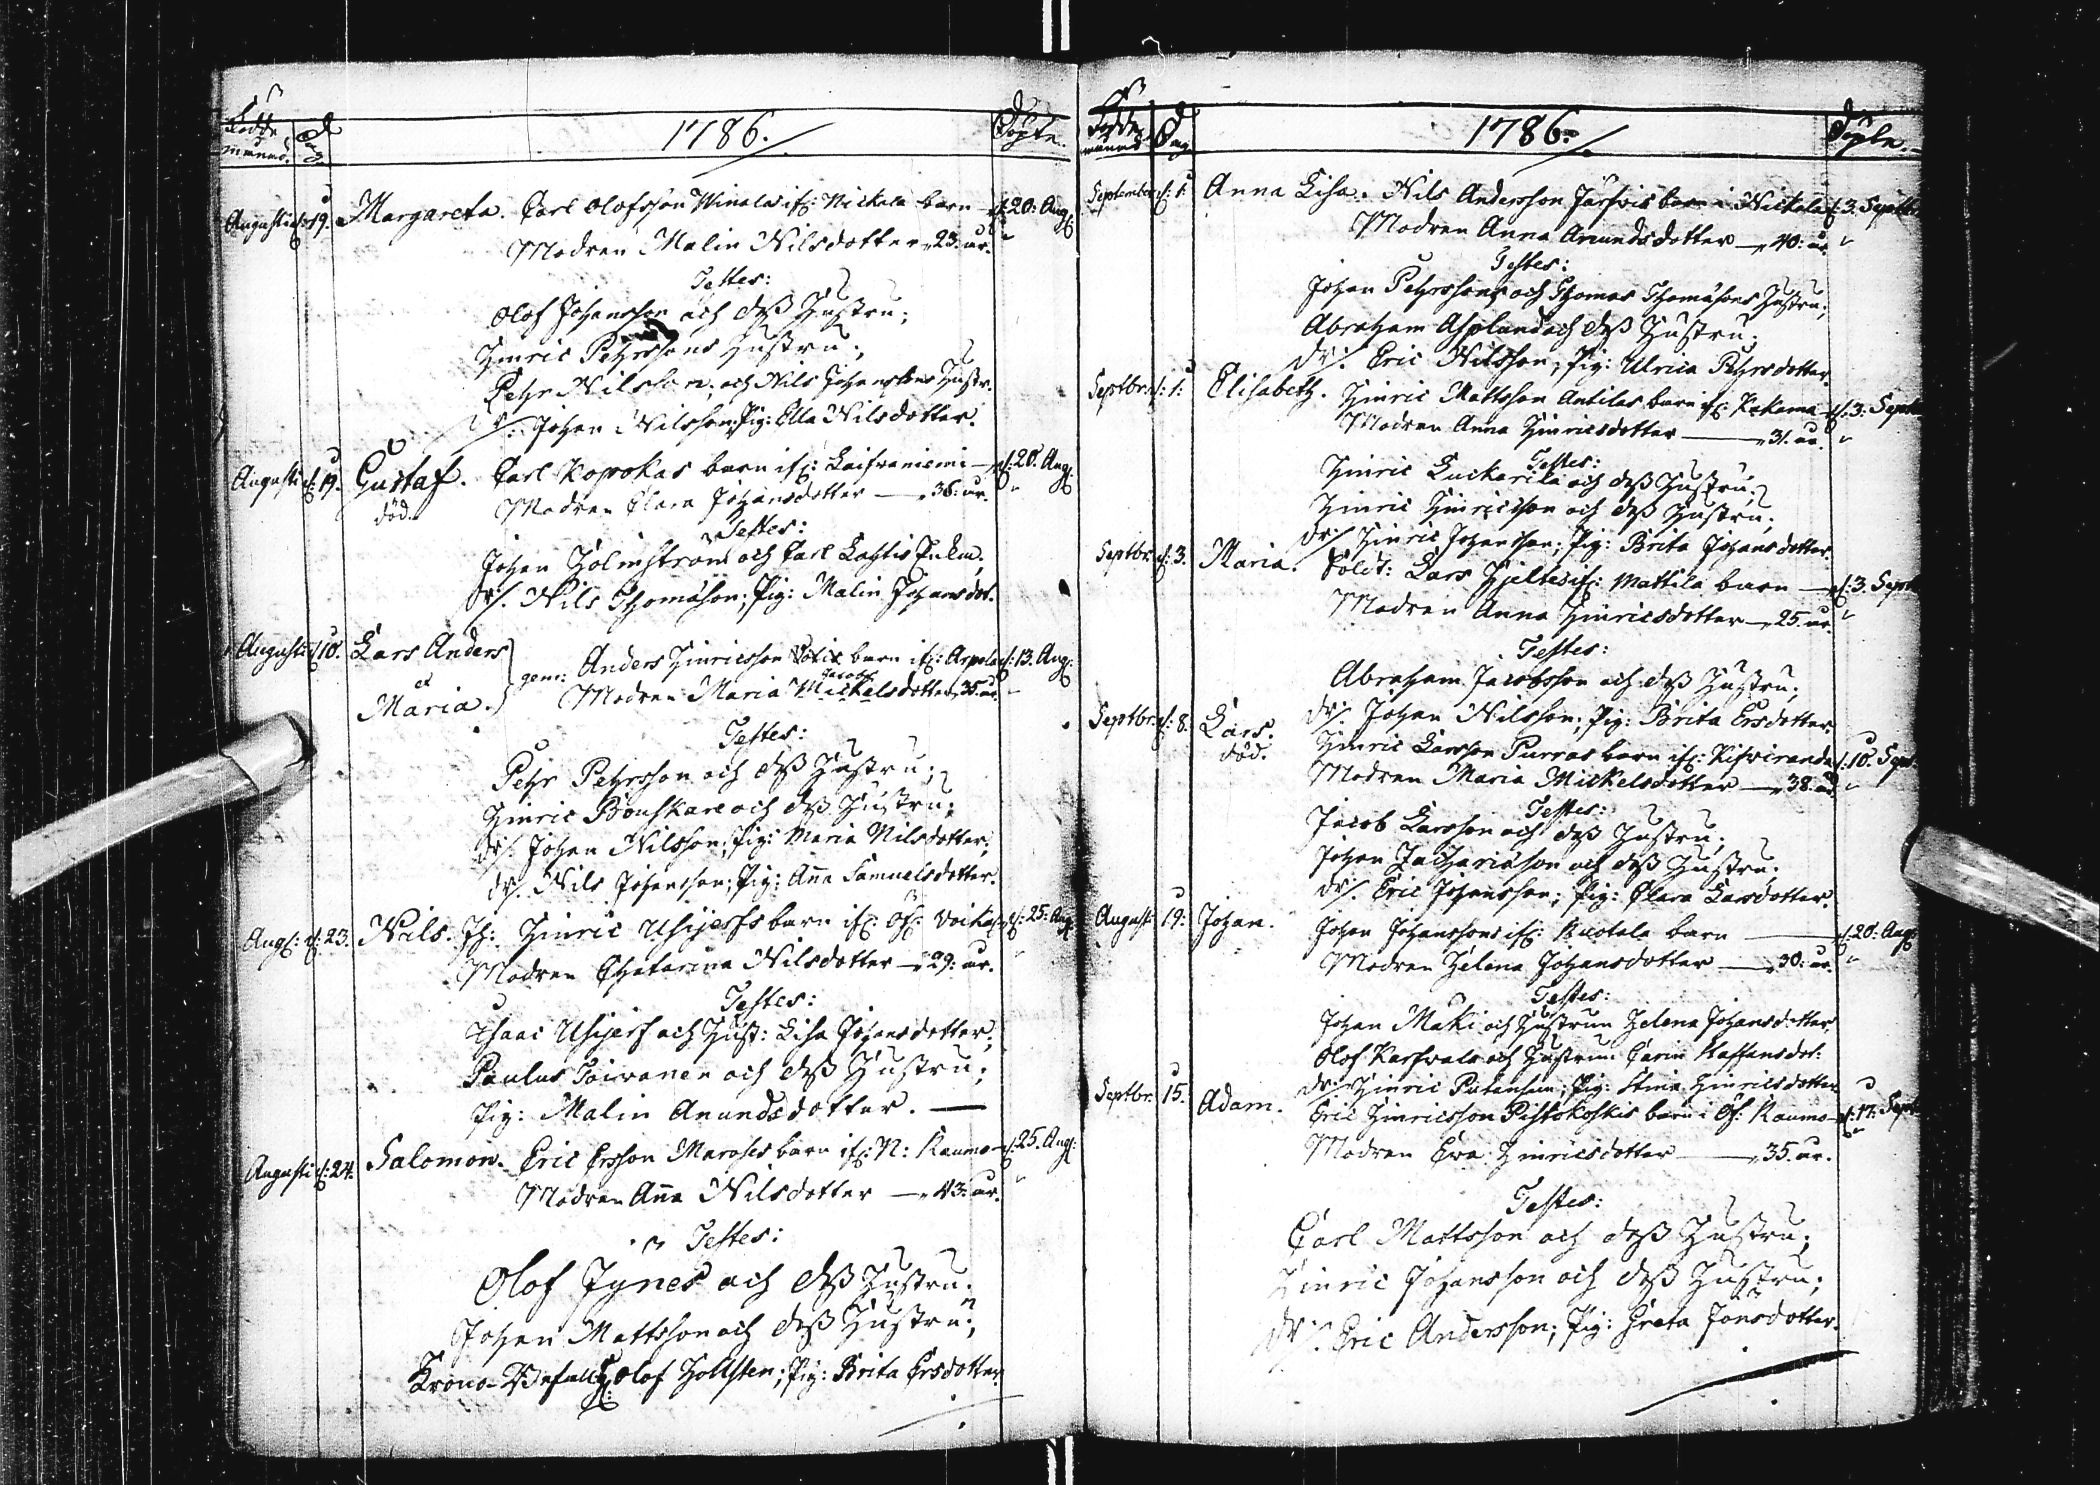 Födde månad. Dag 1786. Döpte.
Augusti d: 19. Margareta. Carl Olofsson Winolas if: Nickala barn d: 20: Aug:
Modren Malin Nilsdotter 23. år.
Testes:
Olof Johansson och deß Hustru;
Hinric Pehrssons Hustru;
Pehr Nilsson, och Nils Johanssons Hustr.
Johan Nilsson; Pig: Ella Nilsdotter.
Augusti d: 19. Gustaf. Carl Kopokas barn if: Laifvaniemi d: 20. Aug:
död. Modren Clara Johansdotter 36: år.
Testes:
Johan Holmström och Carl Lahtis
dr: Nils Thomasson; Pig: Malin Johansdot.
Augusti 10. Lars Anders gem: Anders Hinricsson barn if: Arpela d: 13. Aug:
et Maria. Modren Maria Mickelsdotter 35. år.
Jacobs
Testes:
Pehr Pehrsson och deß Hustru;
Hinric Bonskare och deß Hustru;
dr: Johan Nilsson; Pig: Maria Nilsdotter;
dr: Nils Johansson; Pig: Aña Samuelsdotter.
Aug: d: 23. Nils. Hinric barn if: Öf: Voika d: 25: Aug:
Modren Chatarina Nilsdotter 29: år.
Testes:
Isaac och Hust: Lisa Johansdotter;
Paulus Toivanen och deß Hustru;
Pig: Malin Anundsdotter.
Augusti d: 24. Salomon. Eric Ersson Maroses barn if: N: Raumo d: 25. Aug:
Modren Aña Nilsdotter 43. år.
Testes:
Olof Jynes och deß Hustru.
Johan Mattsson och deß Hustru;
Krono-Befallg: Olof Hollsten; Pig: Brita Ersdotter
Födde månad Dag 1786. Döpte.
September d: 1. Anna Lisa. Nils Andersson Järfvis barn i Nickala d: 3. Septbr
Modren Anna Anundsdotter 40: år
Testes:
Johan Pehrssons och Thomas Thomassons Hustru;
Abraham Asplund och deß Hustru;
dr: Eric Nilsson, Pig: Ulrica Pehrsdotter.
Septbr: d: 1: Elisabeth. Hinric Mattsson Antilas barn if: Kukama d: 3: Septbr
Modren Anna Hinricsdotter 31. år
Testes:
Hinric Luckarila och deß Hustru;
Hinric Hinricsson och deß Hustru;
dr: Hinric Johansson; Pig: Brita Johansdotter.
Septbr: d: 3. Maria. Sold: Lars Hjeltes if: Mattila barn d: 3. Septbr
Modren Anna Hinricsdotter 25. år.
Testes:
Abraham Jacobsson och deß Hustru;
dr: Johan Nilsson; Pig: Brita Ersdotter.
Septbr: d: 8: Lars. Hinric Larsson Purras barn if: Kifviranda d: 10. Sept:
död. Modren Maria Mickelsdotter 38. år
Testes:
Jacob Larsson och deß Hustru;
Johan Zachariasson och deß Hustru.
dr: Eric Johansson; Pig: Clara Larsdotter.
August: 19: Johan. Johan Johanssons if: Ruotala barn d: 20. Aug:
Modren Helena Johansdotter 30: år.
Testes:
Johan Maki och Hustrun Helena Johansdotter
Olof Karfvala och Hustrun Carin Staffansdot:
dr: Hinric; Pig: Stina Hinricsdotter
Septbr. 15. Adam. Eric Hinricsson Pistokoskis barn i Öf: Raumo d: 17: Sept
Modren Eva Hinricsdotter 35. år.
Testes:
Carl Mattsson och deß Hustru;
Hinric Johansson och deß Hustru;
dr: Eric Andersson; Pig: Greta Jönsdotter.